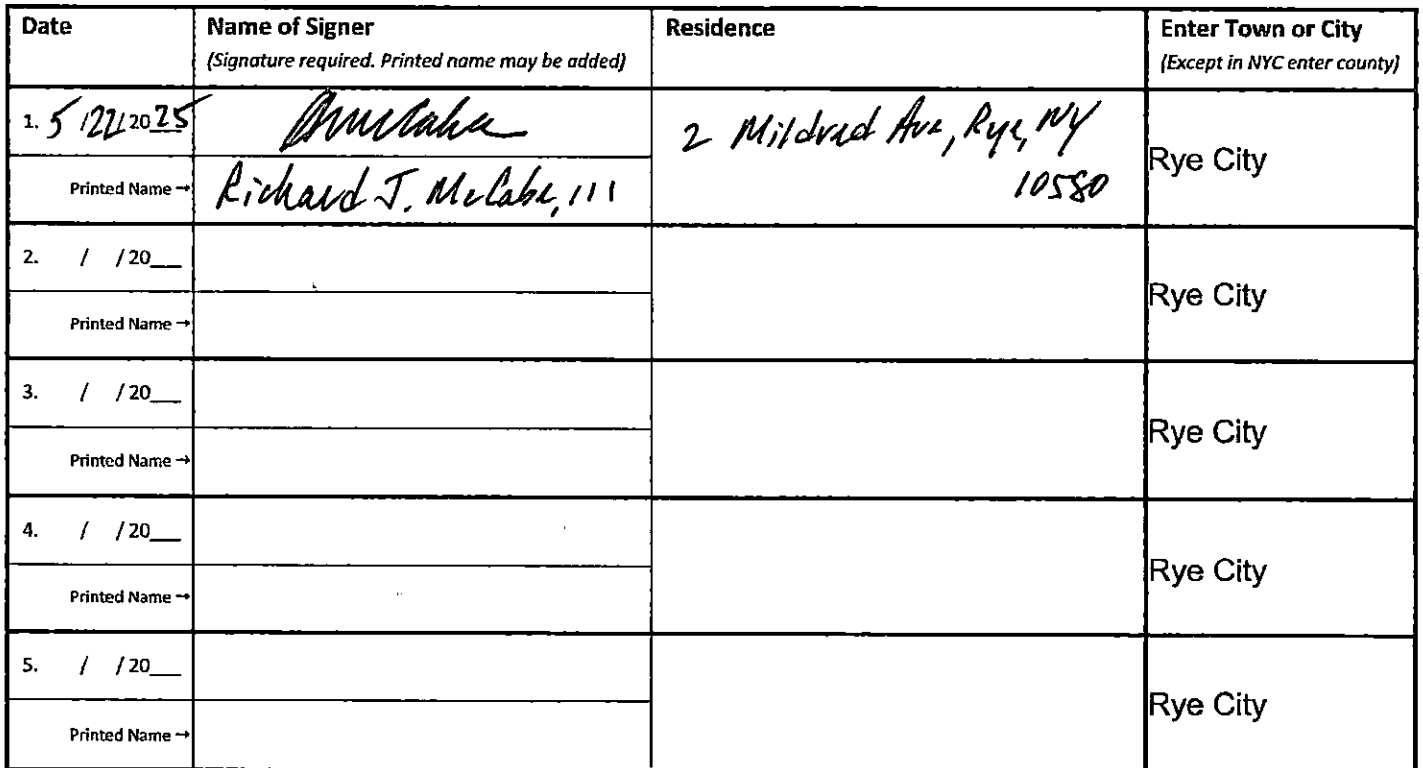 Date Name of Signer Residence Enter Town or City
(Signature required. Printed name may be added) (Except in NYC enter county)
1. 5/22/2025 2 Mildred Ave, Rye, NY
10580
Rye City
Printed Name → Richard J. McCabe, III
2. / /20__
Rye City
Printed Name →
3. / /20__
Rye City
Printed Name →
4. / /20__
Rye City
Printed Name →
5. / /20__
Rye City
Printed Name →